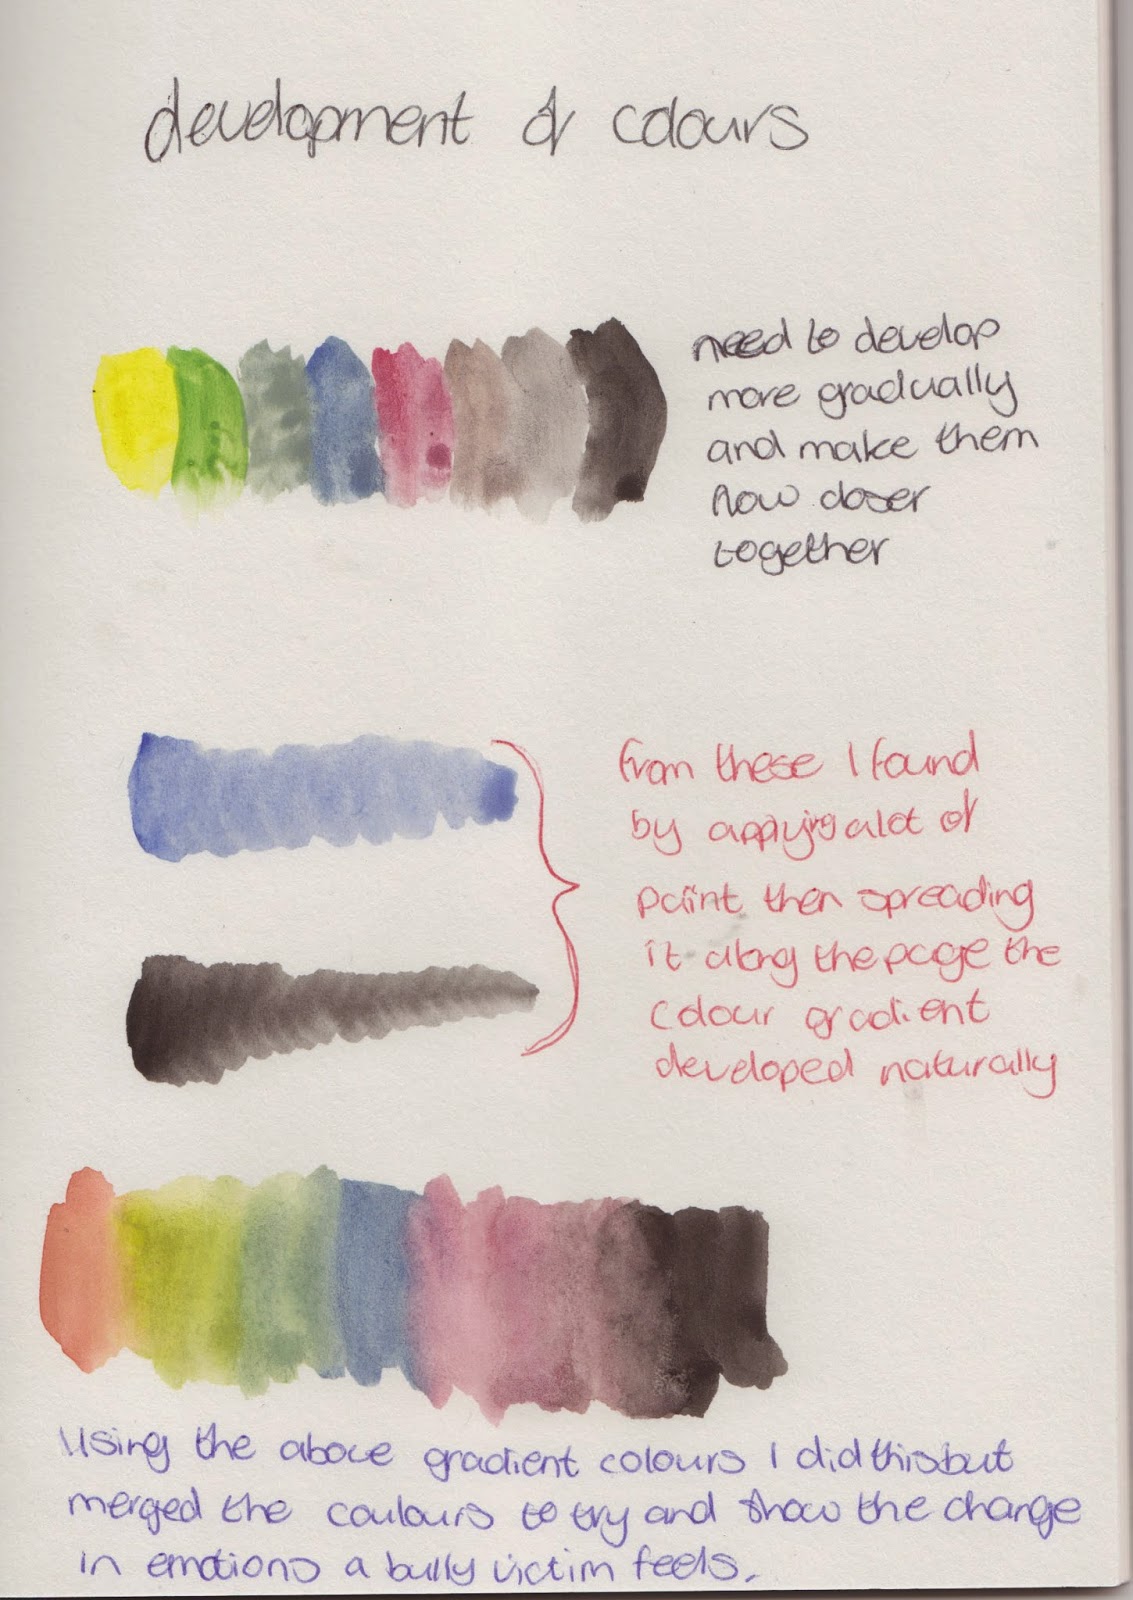 development of colours
need to develop
more gradually
and make them
flow closer
together
from these I found
by applying a lot of
paint then spreading
it along the page the
colour gradient
developed naturally
Using the above gradient colours I did this but
merged the coulours to try and show the change
in emotions a bully victim feels.